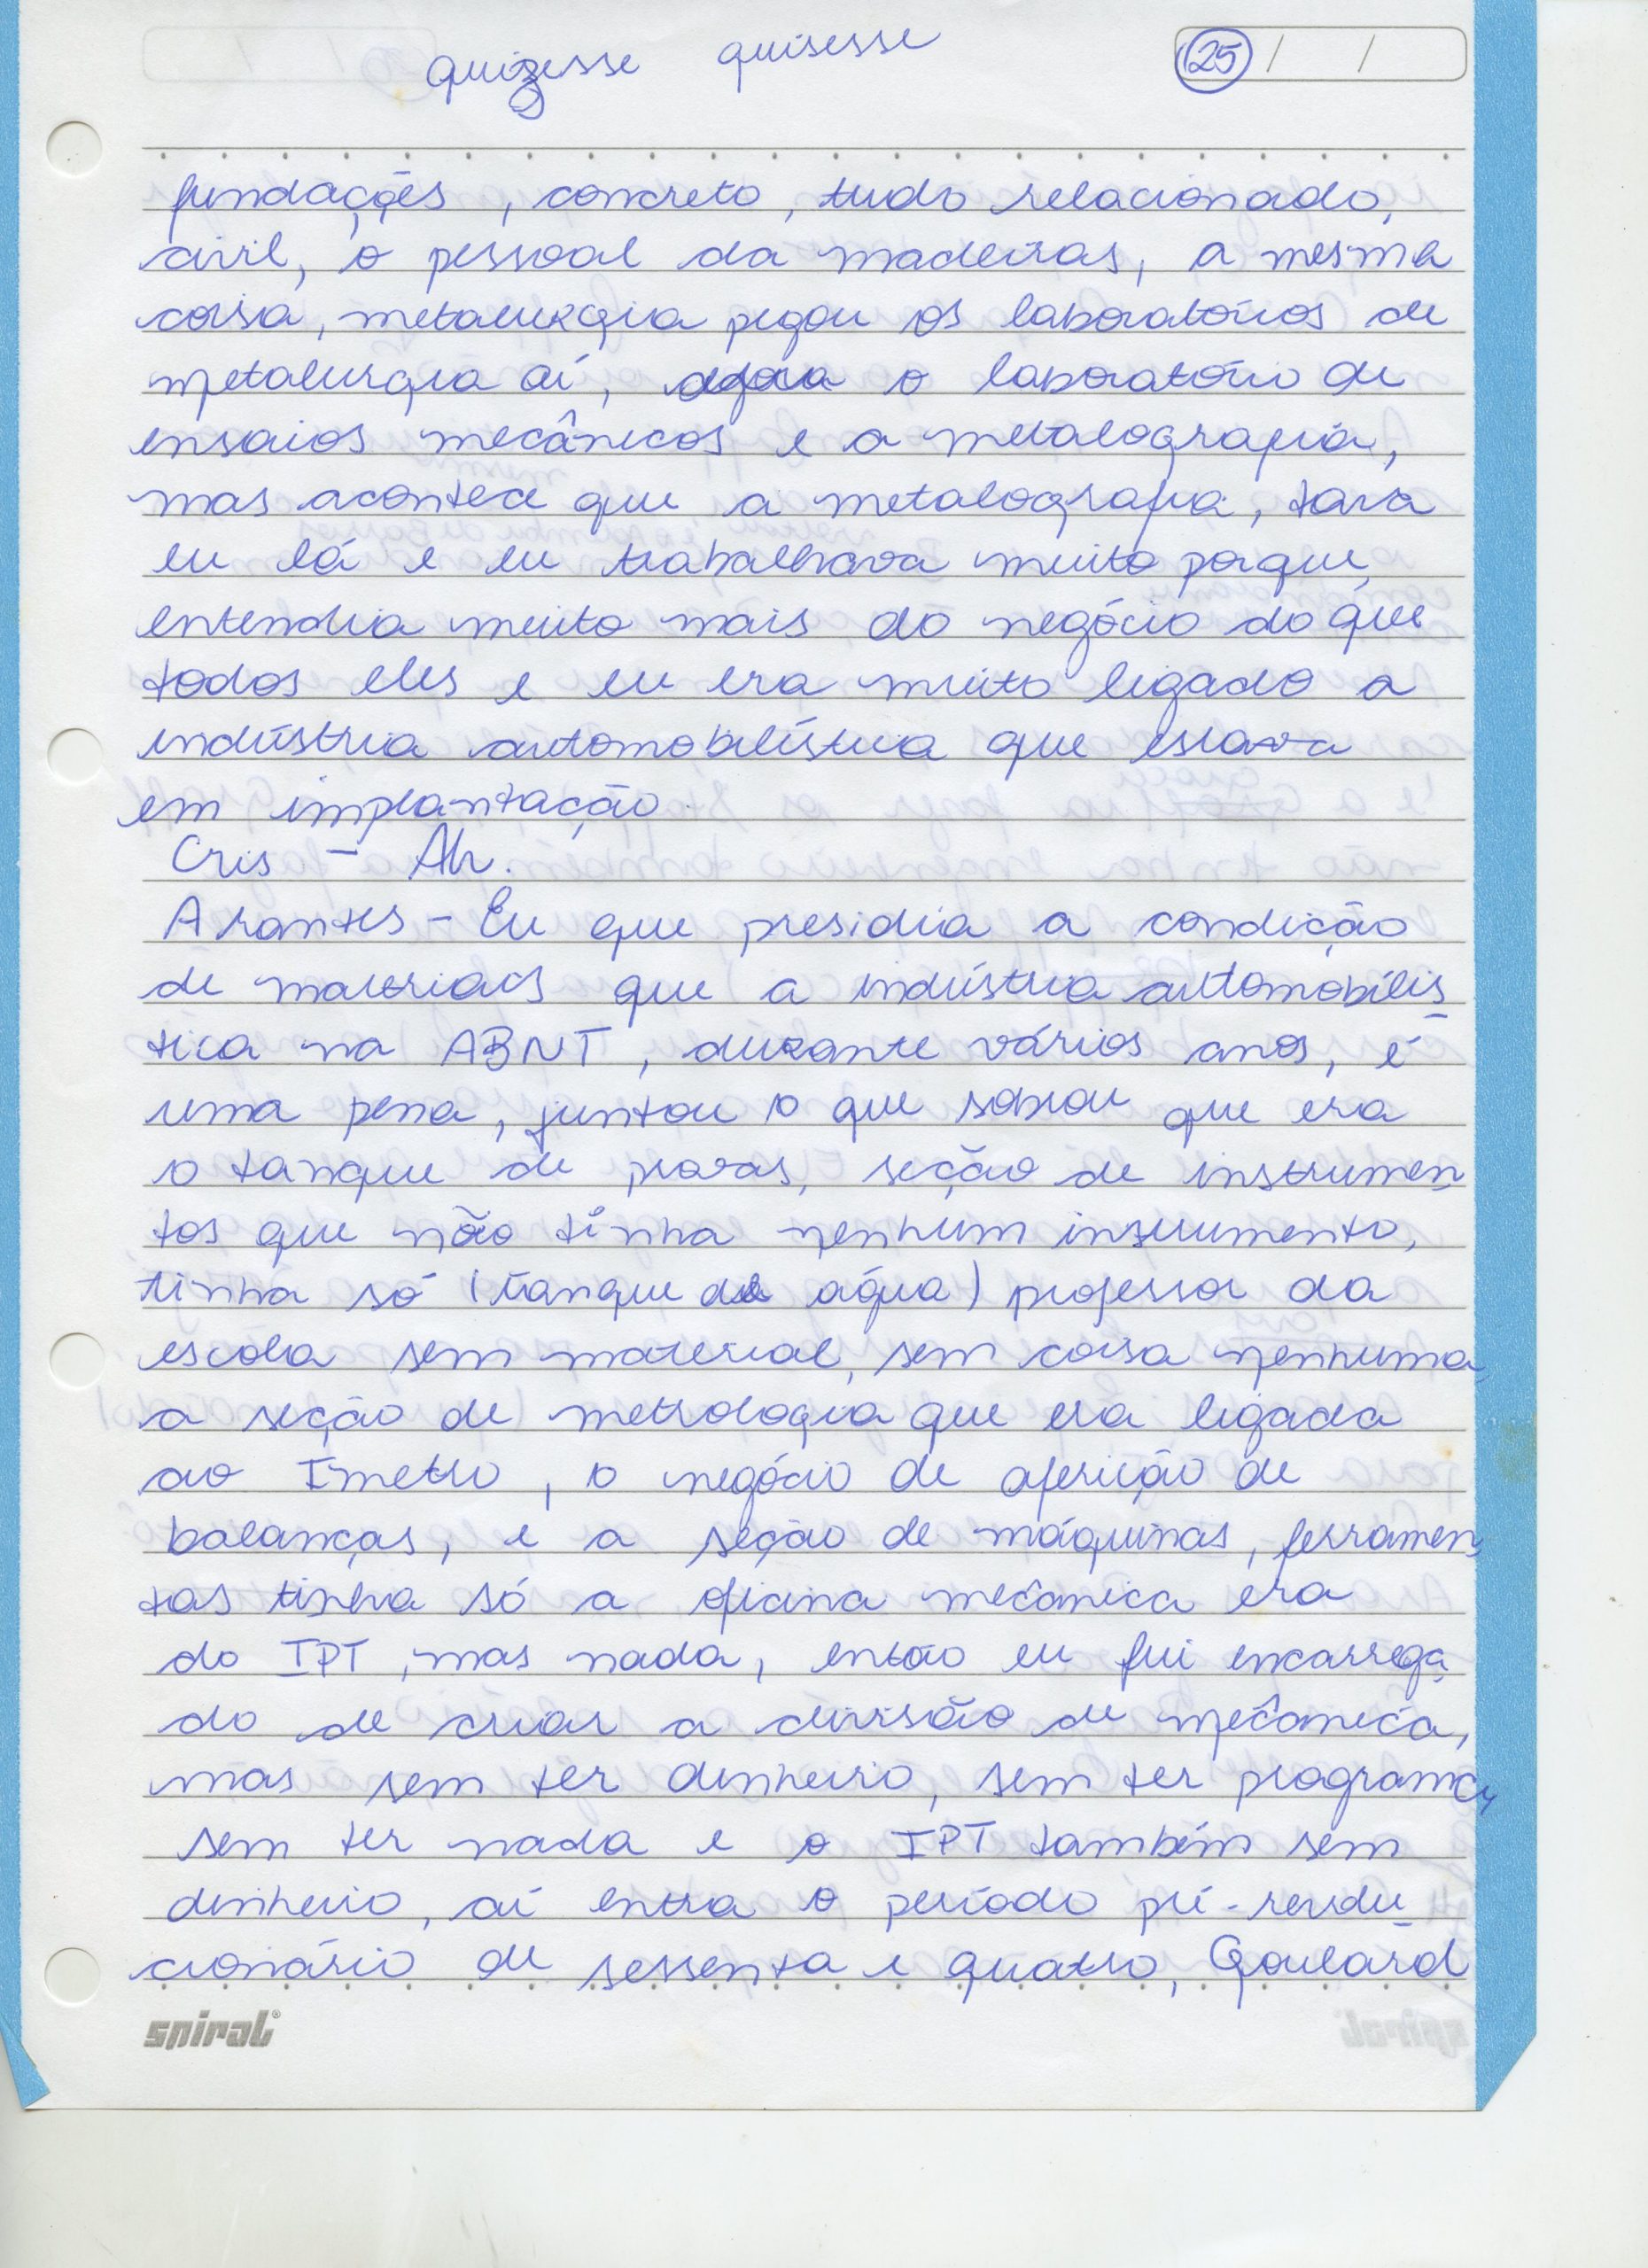 quizesse quisesse 25 / /
fundações, concreto, tudo relacionado,
civil, o pessoal da madeiras, a mesma
coisa, metalurgia pegou os laboratórios de
metalurgia aí, agora o laboratório de
ensaios mecânicos e a metalografia,
mas acontece que a metalografia, tava
eu lá e eu trabalhava muito porque
entendia muito mais do negócio do que
todos eles e eu era muito ligado a
indústria automobilística que estava
em implantação.
Cris - Ah.
Arantes - Eu que presidia a condição
de materiais que a indústria automobilís
tica na ABNT, durante vários anos, é
uma pena, juntou o que sobrou que era
o tanque de provas, seção de instrumen
tos que não tinha nenhum instrumento,
tinha só (tanque de água) professor da
escola sem material, sem coisa nenhuma,
a seção de metrologia que era ligada
ao Imetro, o negócio de aferição de
balanças, e a seção de máquinas, ferramen
tas tinha só a oficina mecânica era
do IPT, mas nada, então eu fui encarrega
do de criar a divisão de mecânica,
mas sem ter dinheiro, sem ter programa,
sem ter nada e o IPT também sem
dinheiro, aí entra o período pré-revolu
cionário de sessenta e quatro, Goulard
spiral®